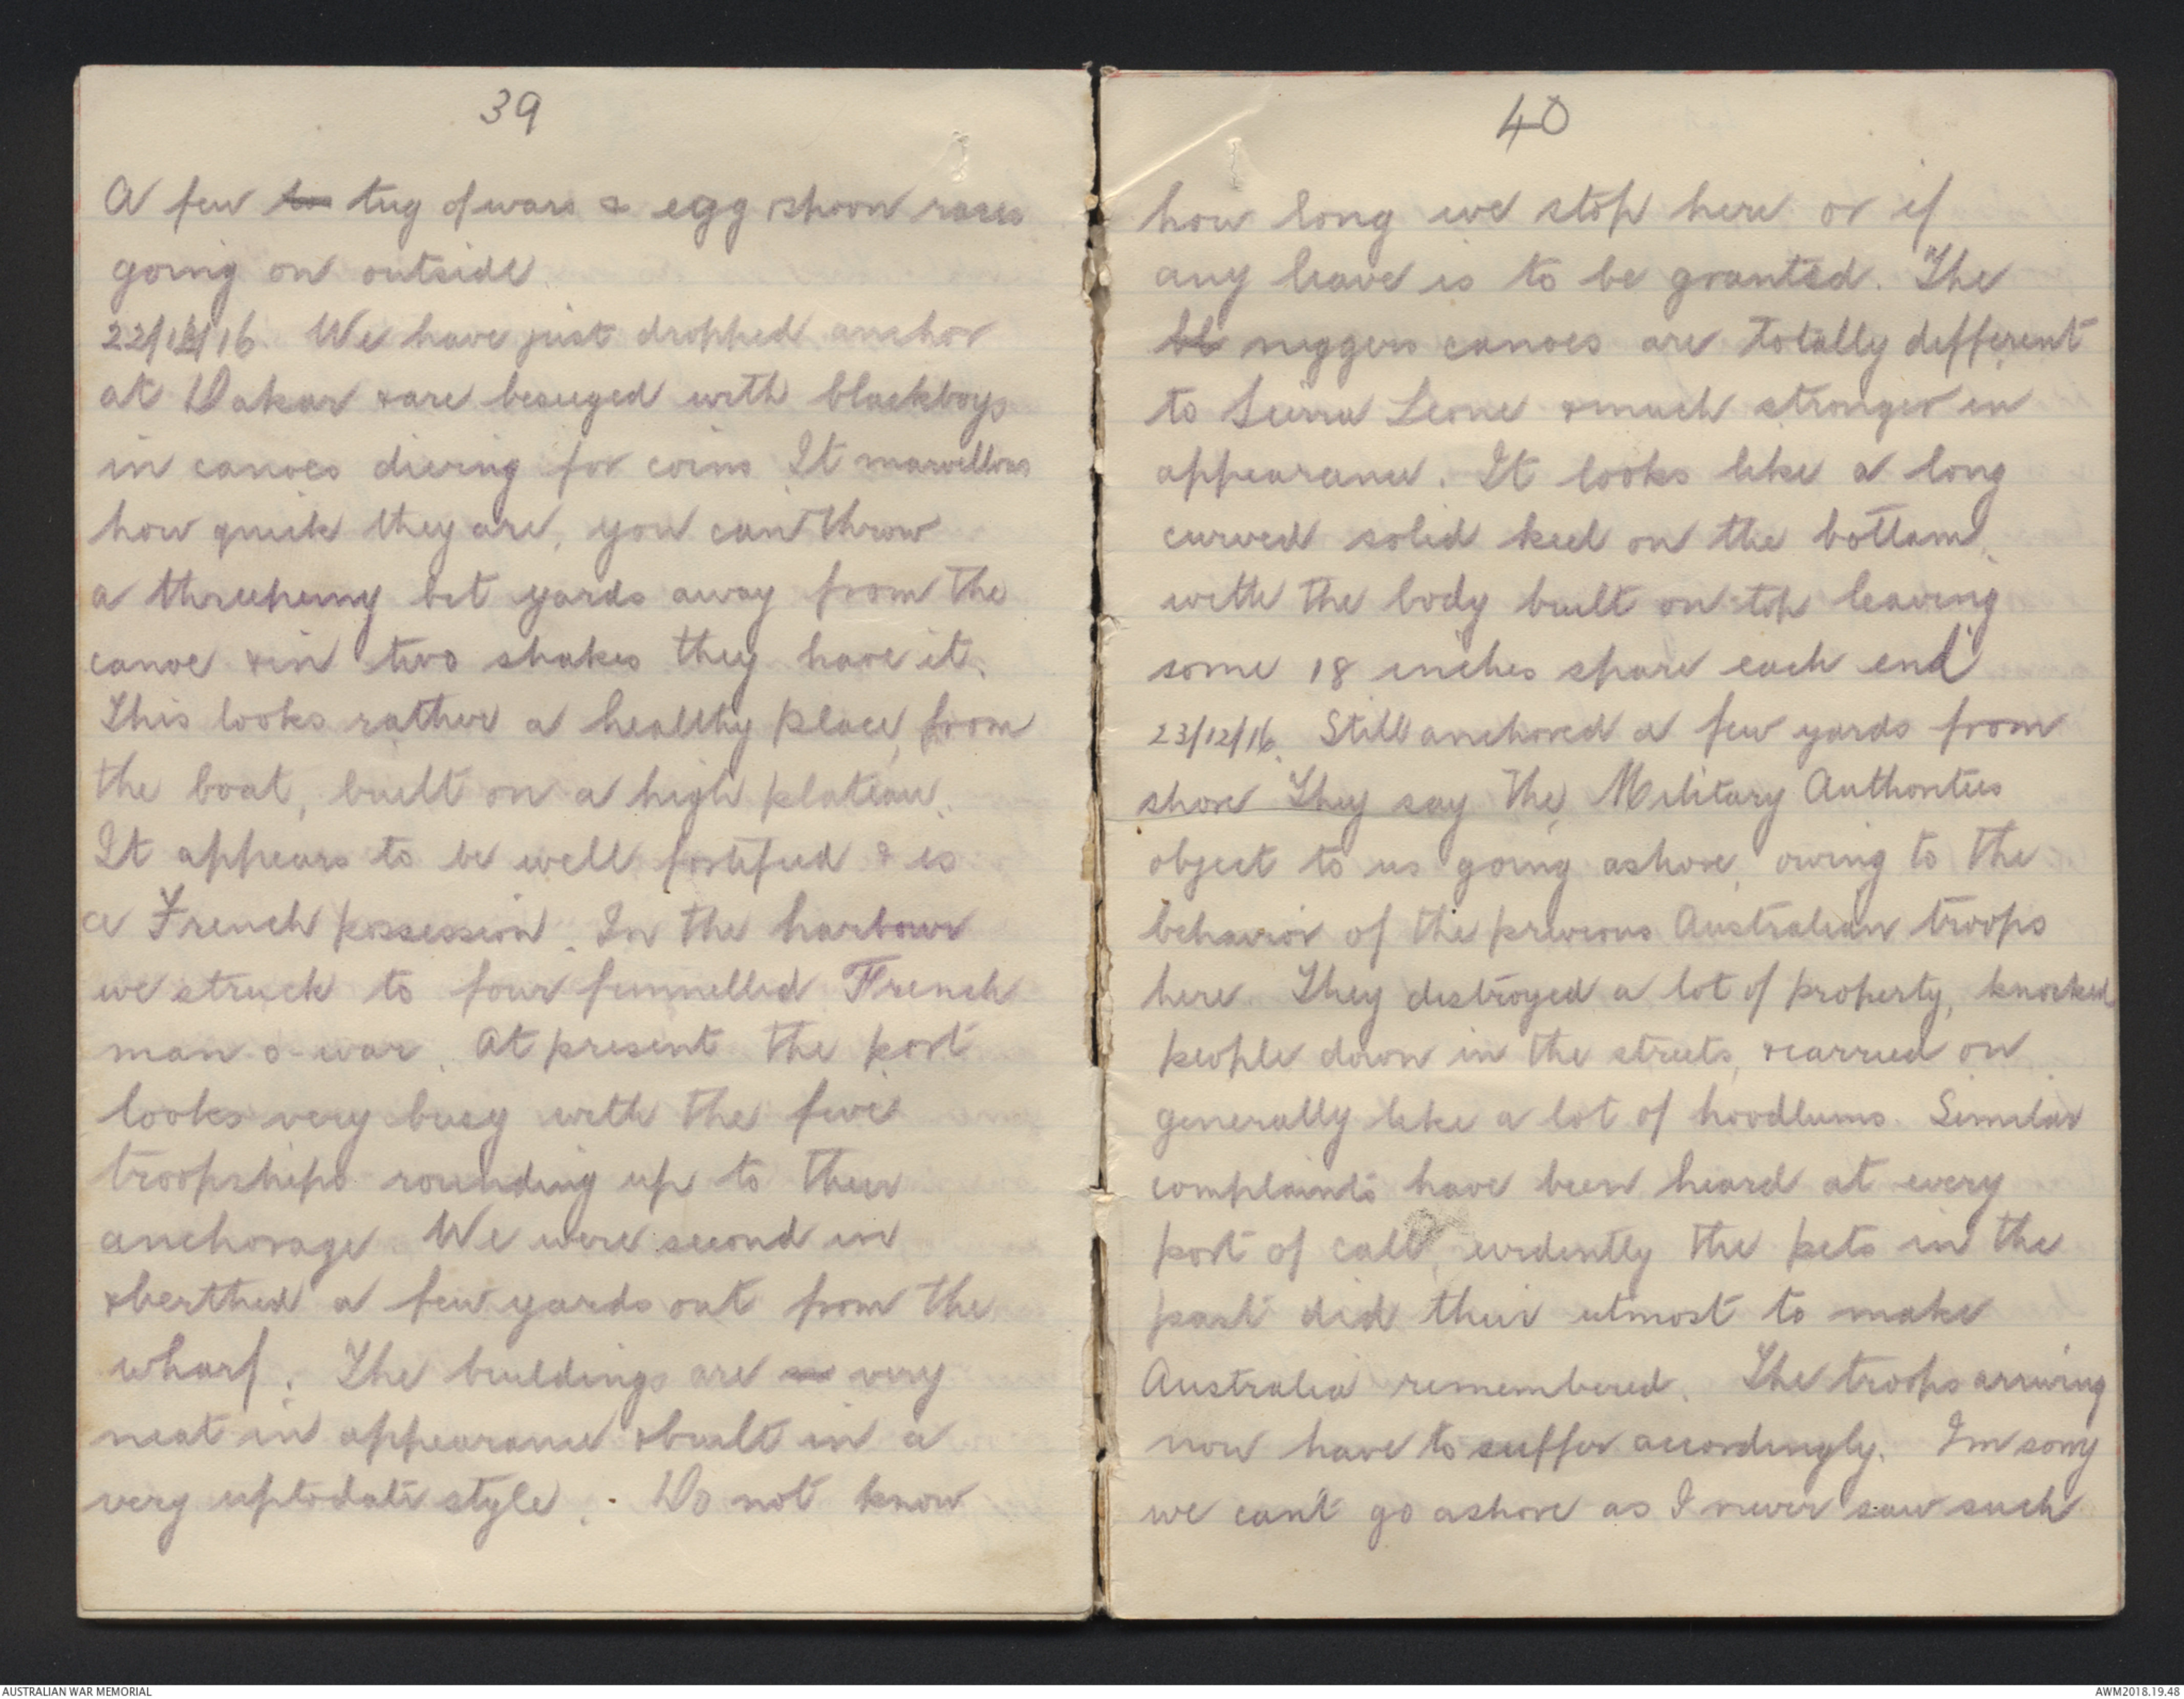 39
A few to tug of wars & egg spoon races
going on outside
22/12/16. We have just dropped anchor
at Dakar & are besieged with blackboys
in canoes diving for coins It marvellous
how quick they are, you can throw
a threepenny bit yards away from the
canoe & in two shakes they have it.
This looks rather a healthy place, from
the boat, built on a high plateau.
It appears to be well fortified & is
a French possession. In the harbour
we struck to four funnelled French
man-o-war. At present the port
looks very busy with the five
troopships rounding up to their
anchorage. We were second in
& berthed a few yards out from the
wharf. The buildings are very
neat in appearance & built in a
very uptodate style. Do not know
40
how long we stop here or if
any leave is to be granted. The
bl niggers canoes are totally different
to Sierra Leone & much stronger in
appearance. It looks like a long
curved solid keel on the bottam,
with the body built on top leaving
some 18 inches spare each end
23/12/16. Still anchored a few yards from
shore They say the, Military Authorities
object to us going ashore, owing to the
behavior of the previous Australian troops
here. They destroyed a lot of property, knocked
people down in the streets, & carried on
generally like a lot of hoodlums. Similar
complaints have been heard at every
port of call, evidently the pets in the
past did their utmost to make
Australia remembered. The troops arriving
now have to suffer accordingly. Im sorry
we can't go ashore as I never saw such
AUSTRALIAN WAR MEMORIAL
AWM2018.19.48